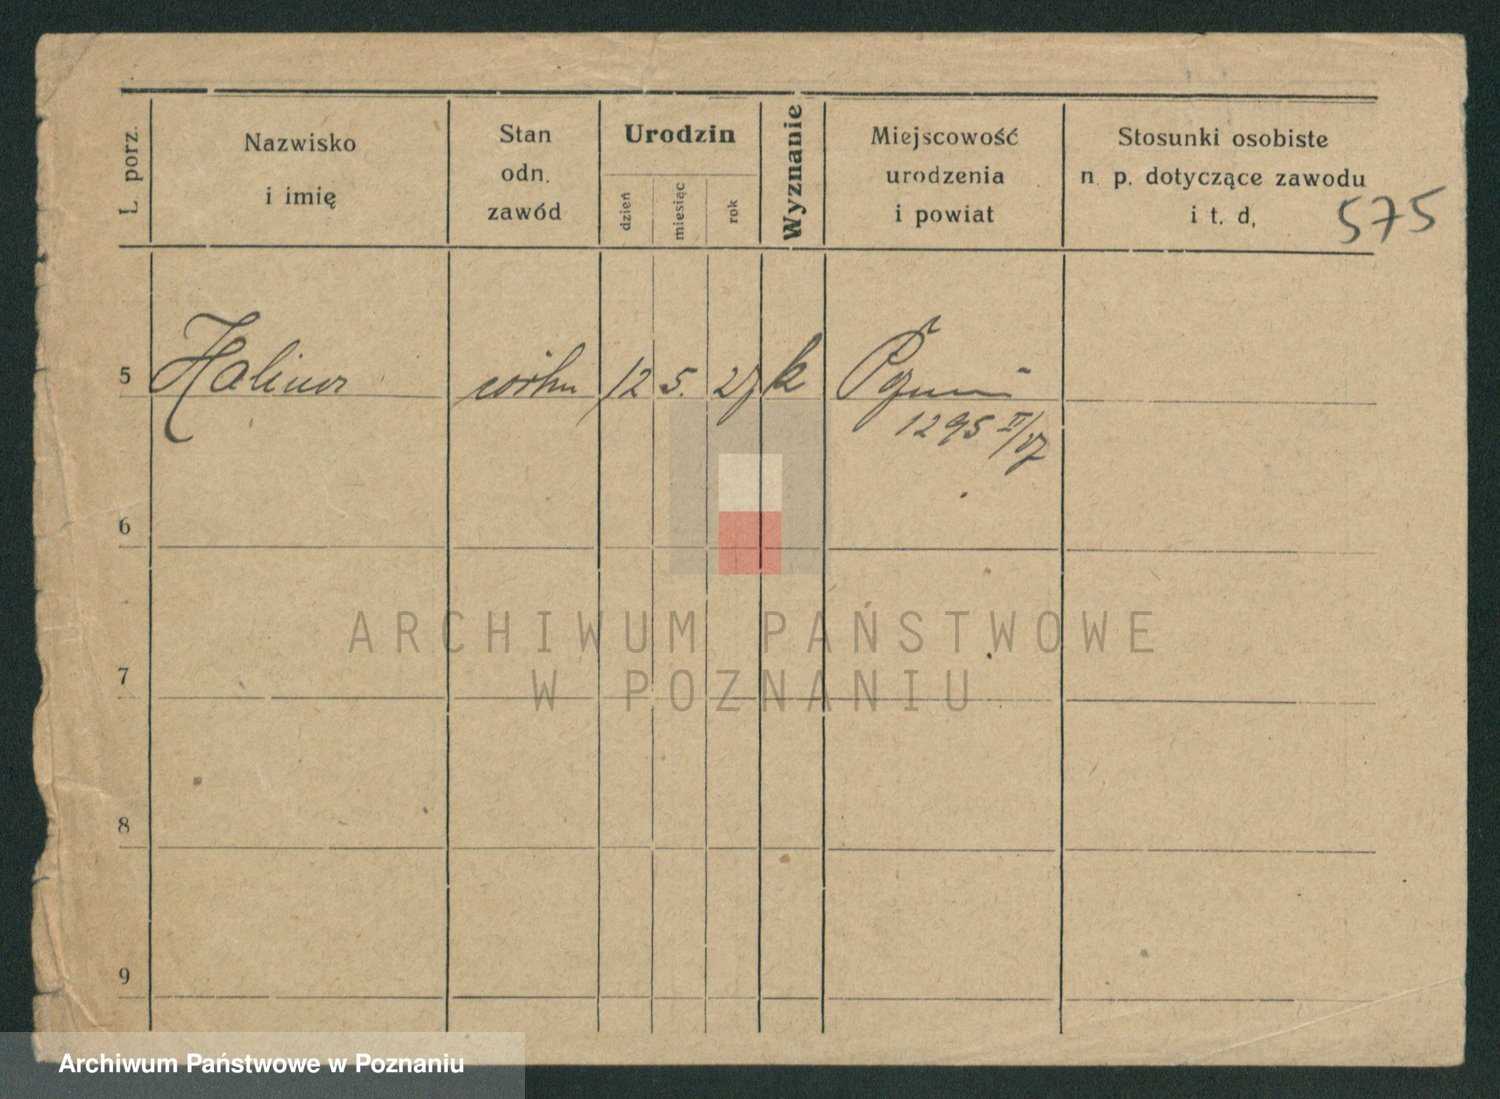 L. porz.
Nazwisko
i imię
Stan
odn.
zawód
Urodzin
dzień
miesiąc
rok
Wyznanie
Miejscowość
urodzenia
i powiat
Stosunki osobiste
n. p. dotyczące zawodu
i t. d,
575
5 Halina córka 12 5. 27 k Poznań
1295 II/27
6
7
8
9
ARCHIWUM PAŃSTWOWE
W POZNANIU
Archiwum Państwowe w Poznaniu